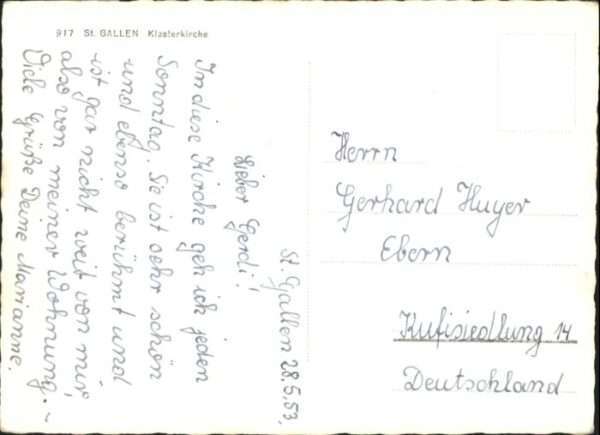 917 St. GALLEN Klosterkirche
St. Gallen 28.5.53.
Lieber Gerdi!
In diese Kirche geh ich jeden
Sonntag. Sie ist sehr schön
und ebenso berühmt und
ist gar nicht weit von mir,
also von meiner Wohnung.-
Viele Grüße Deine Marianne.
Herrn
Gerhard Huyer
Ebern
Kufisiedlung 14
Deutschland